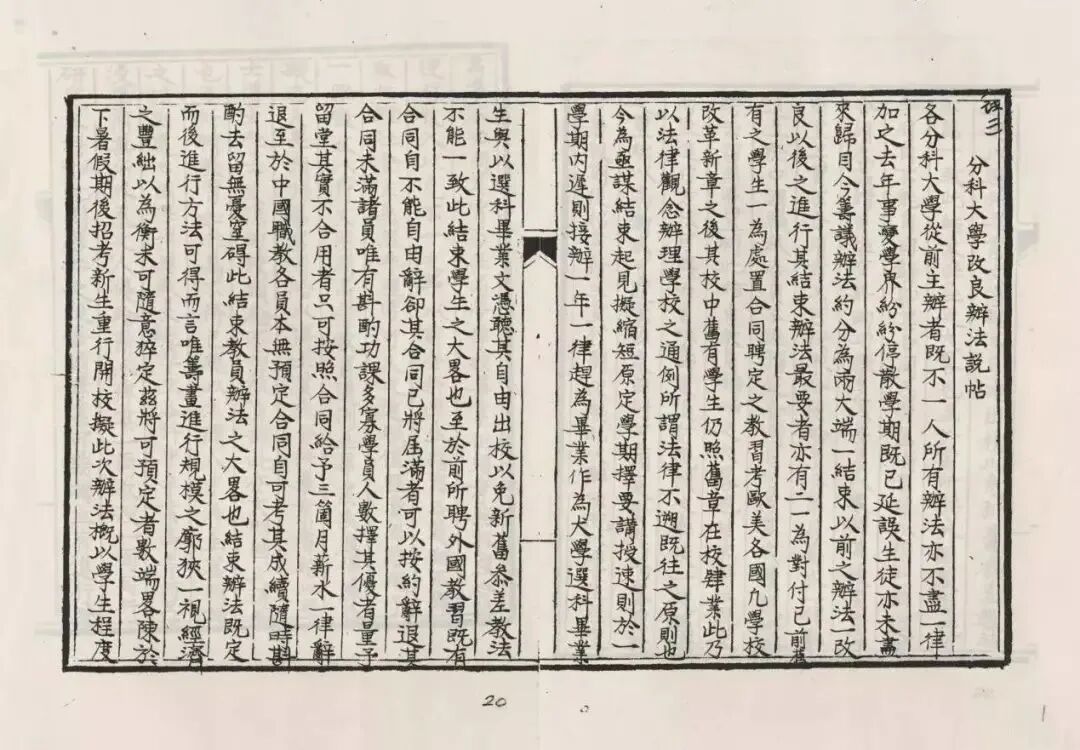 分科大學改良辦法說帖
各分科大學從前主辦者既不一人所有辦法亦不盡一律
加之去年事變學界紛紛停散學期既已延誤生徒亦未盡
來歸目今籌議辦法約分為兩大端一結束以前之辦法一改
良以後之進行其結束辦法最要者亦有二一為對付已前舊
有之學生一為處置合同聘定之教習考歐美各國凡學校
改革新章之後其校中舊有學生仍照舊章在校肄業此乃
以法律觀念辦理學校之通例所謂法律不溯既往之原則也
今為亟謀結束起見擬縮短原定學期擇要講授速則於一
學期內遲則接辦一年一律趕為畢業作為大學選科畢業
生與以選科畢業文憑聽其自由出校以免新舊參差教法
不能一致此結束學生之大畧也至於前所聘外國教習既有
合同自不能自由辭卻其合同已將屆滿者可以按約辭退其
合同未滿諸員唯有斟酌功課多寡學員人數擇其優者量予
留堂其實不合用者只可按照合同給予三箇月薪水一律辭
退至於中國職教各員本無預定合同自可考其成績隨時斟
酌去留無憂窒碍此結束教員辦法之大畧也結束辦法既定
而後進行方法可得而言唯籌畫進行規模之廓狹一視經濟
之豐絀以為衡未可隨意猝定茲將可預定者數端畧陳於
下暑假期後招考新生重行開校擬此次辦法概以學生程度
20
1